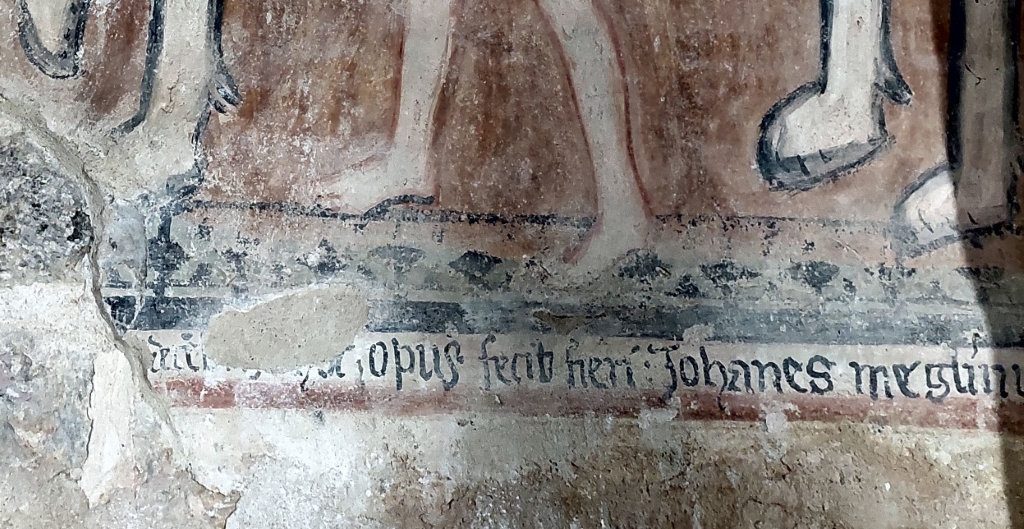 opus fecit fieri : Johanes meglinu